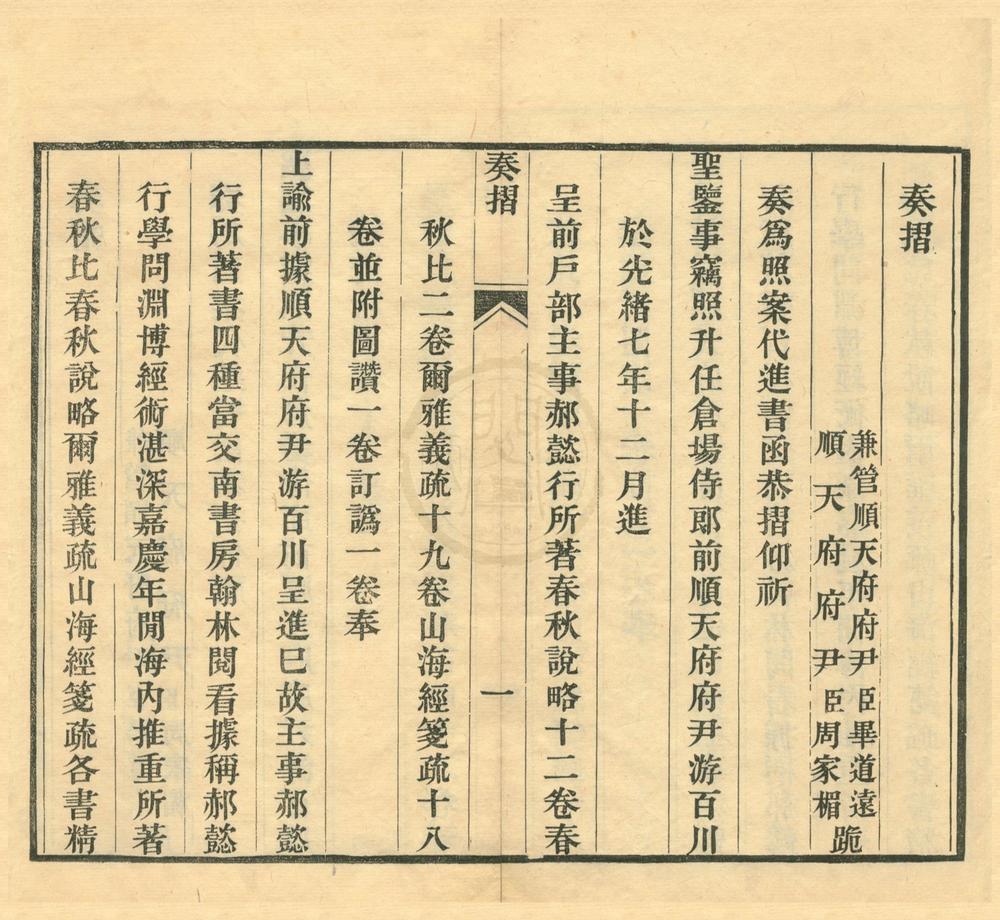 奏摺
兼管順天府府尹臣畢道遠
順天府府尹臣周家楣
跪
奏爲照案代進書函恭摺仰祈
聖鑒事竊照升任倉場侍郎前順天府府尹游百川
於光緒七年十二月進
呈前戶部主事郝懿行所著春秋說略十二卷春
奏摺
一
秋比二卷爾雅義疏十九卷山海經箋疏十八
卷並附圖讚一卷訂譌一卷奉
上諭前據順天府府尹游百川呈進已故主事郝懿
行所著書四種當交南書房翰林閱看據稱郝懿
行學問淵博經術湛深嘉慶年閒海內推重所著
春秋比春秋說略爾雅義疏山海經箋疏各書精